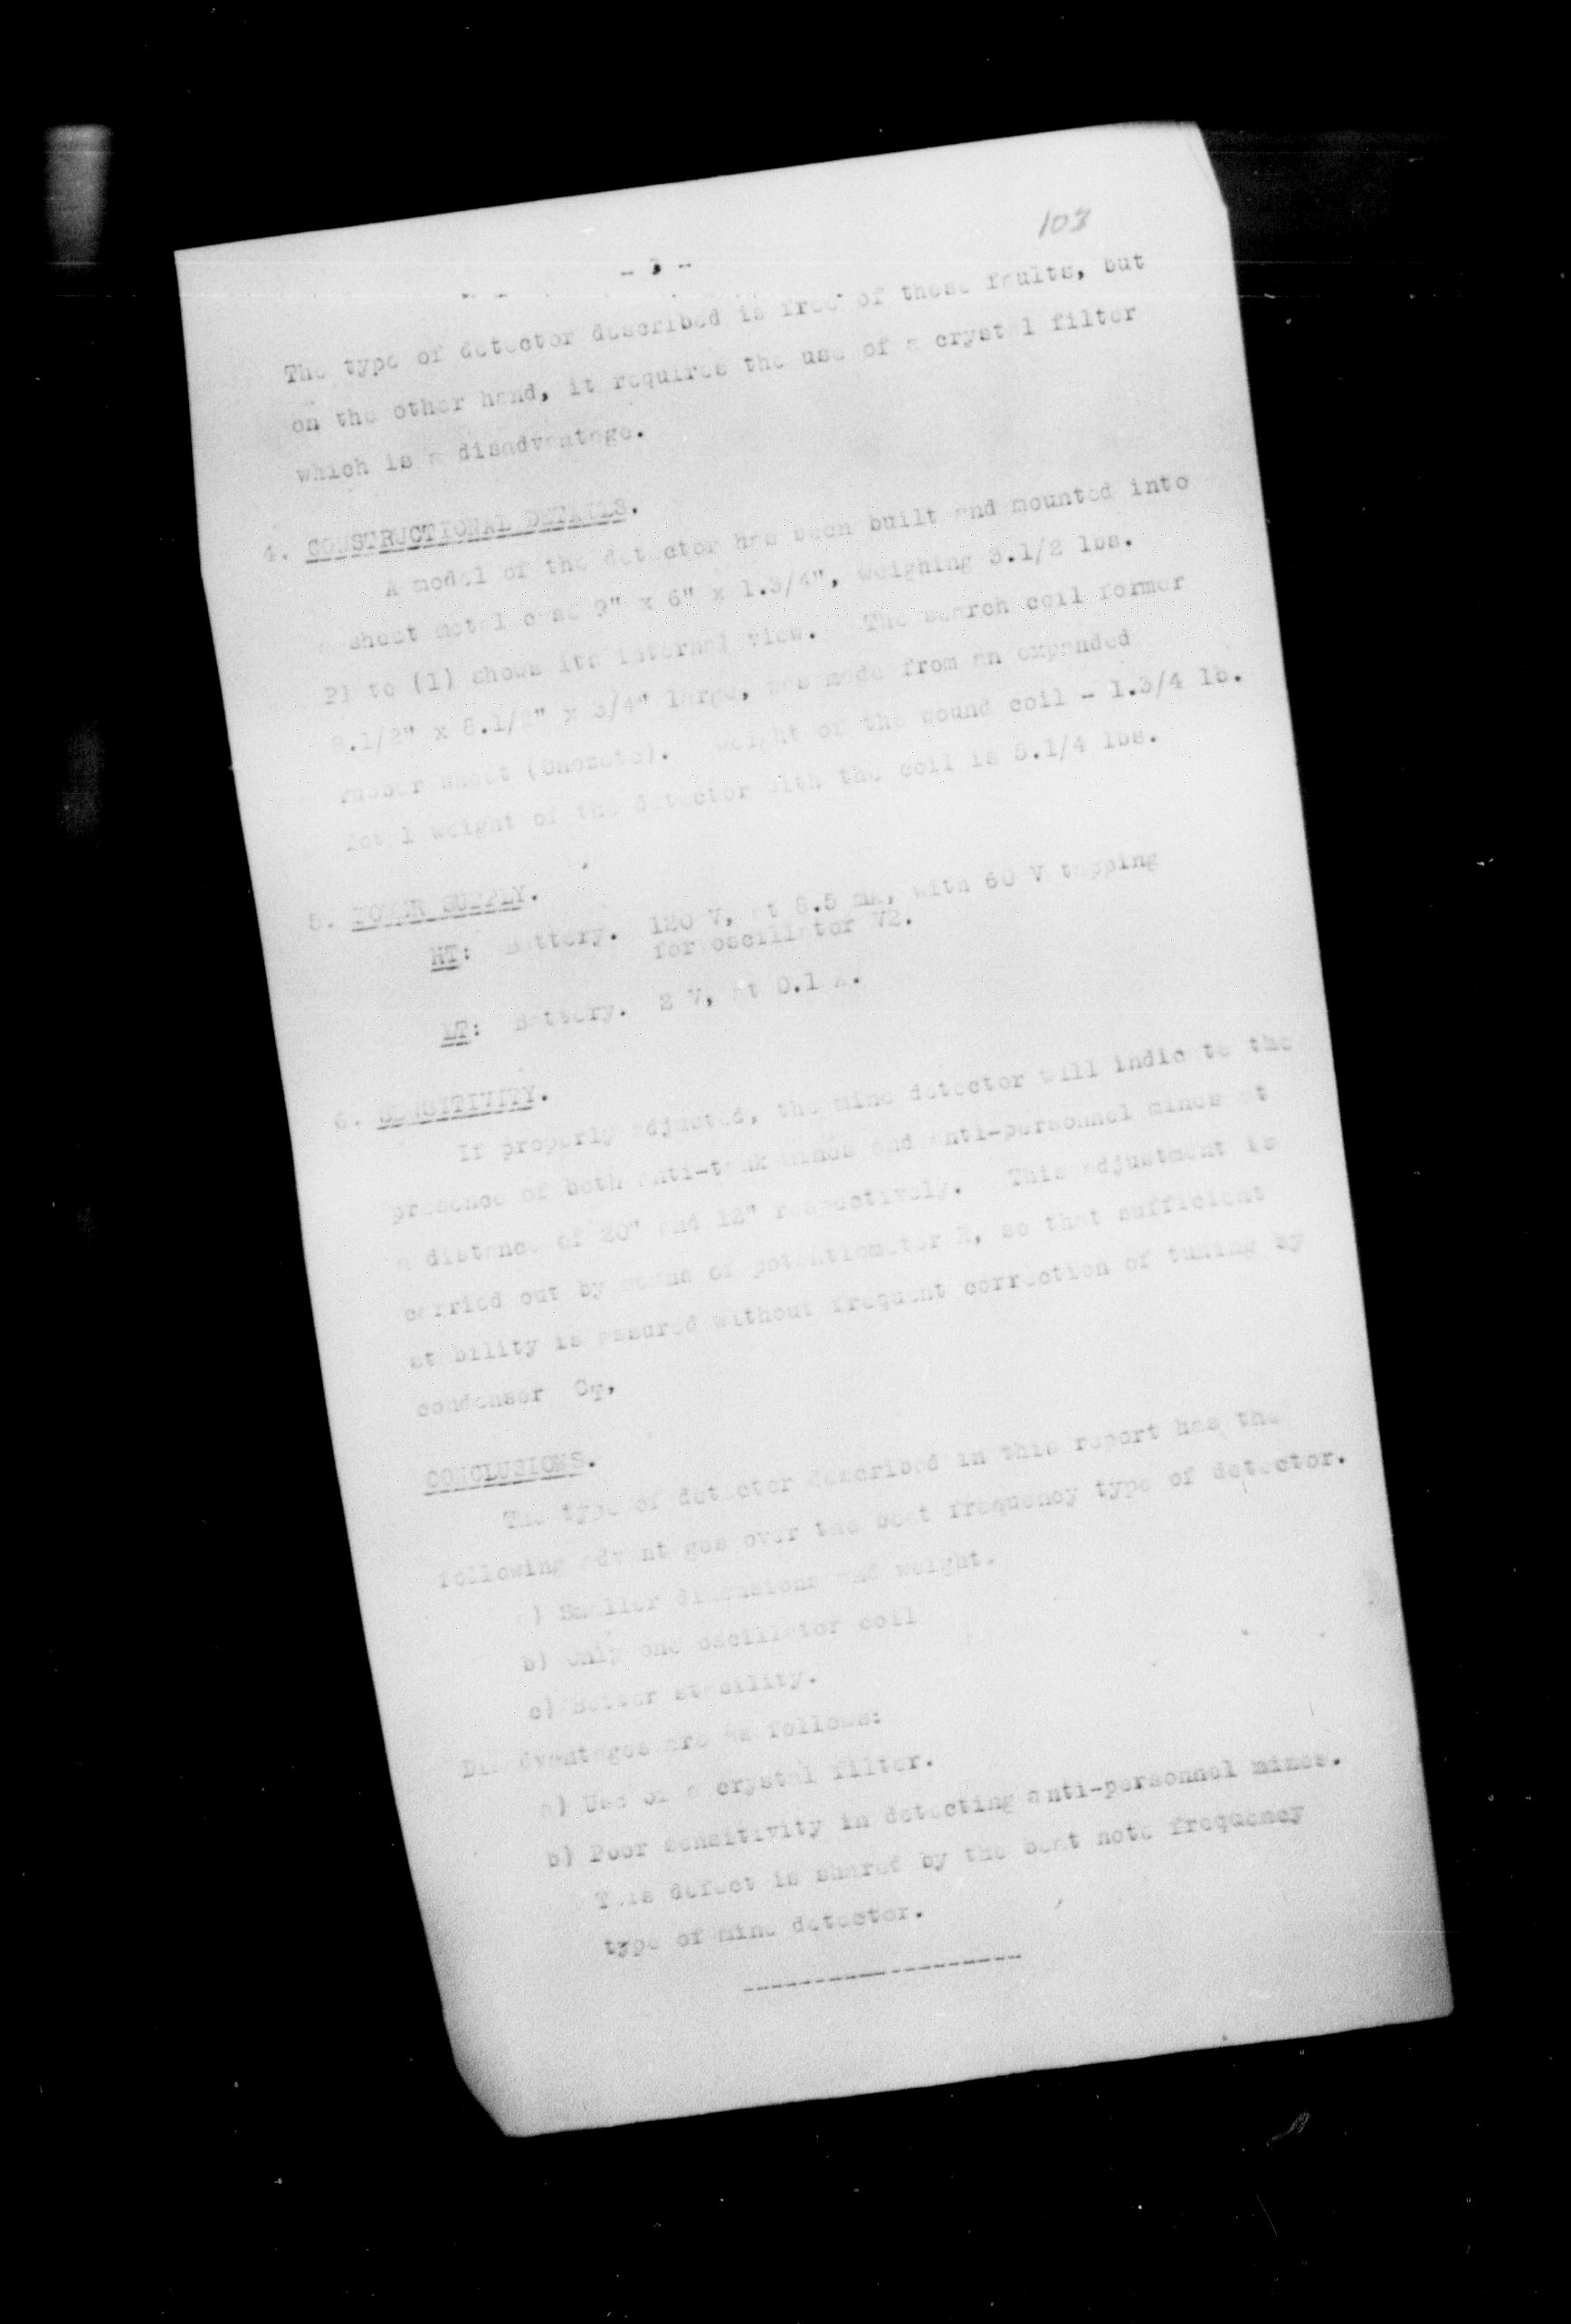 103
- 3 -
The type of detector described is free of these faults, but
on the other hand, it requires the use of a crystal filter
which is a disadvantage.
4. CONSTRUCTIONAL DETAILS.
A model of the detector has been built and mounted into
a sheet metal case 9" x 6" x 1.3/4", weighing 3.1/2 lbs.
Plate (1) shows its internal view. The search coil former
8.1/2" x 8.1/2" x 3/4" large, was made from an expanded
rubber sheet (Onozote). Weight of the wound coil - 1.3/4 lb.
Total weight of the detector with the coil is 5.1/4 lbs.
5. POWER SUPPLY.
HT: Battery. 120 V, at 8.5 mA, with 60 V tapping
for oscillator V2.
LT: Battery. 2 V, at 0.1 A.
6. SENSITIVITY.
If properly adjusted, the mine detector will indicate the
presence of both anti-tank mines and anti-personnel mines at
a distance of 20" and 12" respectively. This adjustment is
carried out by means of potentiometer R, so that sufficient
stability is assured without frequent correction of tuning by
condenser CT.
CONCLUSIONS.
The type of detector described in this report has the
following advantages over the beat frequency type of detector.
a) Smaller dimensions and weight.
b) Only one oscillator coil
c) Better stability.
Disadvantages are as follows:
a) Use of a crystal filter.
b) Poor sensitivity in detecting anti-personnel mines.
This defect is shared by the beat note frequency
type of mine detector.
-------------------